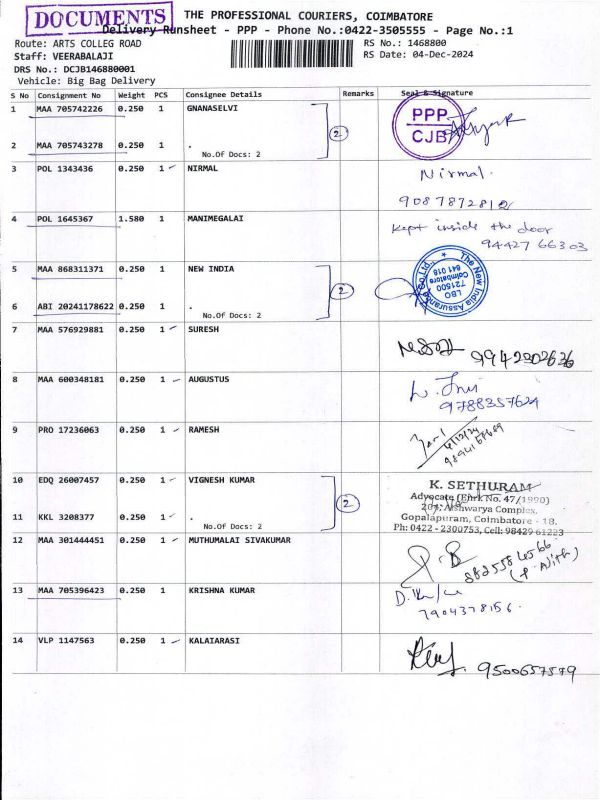 DOCUMENTS
THE PROFESSIONAL COURIERS, COIMBATORE
Delivery Runsheet - PPP - Phone No.:0422-3505555 - Page No.:1
Route: ARTS COLLEG ROAD
RS No.: 1468800
Staff: VEERABALAJI
RS Date: 04-Dec-2024
DRS No.: DCJB146880001
Vehicle: Big Bag Delivery
S No Consignment No Weight PCS Consignee Details Remarks Seal & Signature
1 MAA 705742226 0.250 1 GNANASELVI
PPP
CJB
2
2 MAA 705743278 0.250 1 .
No.Of Docs: 2
3 POL 1343436 0.250 1 NIRMAL
Nirmal.
9087872812
4 POL 1645367 1.580 1 MANIMEGALAI
kept inside the door
94427 66303
5 MAA 868311371 0.250 1 NEW INDIA
2
The New India Assurance Co. Ltd.,
LBO
721500
Coimbatore
641 018
6 ABI 20241178622 0.250 1 .
No.Of Docs: 2
7 MAA 576929881 0.250 1 SURESH
9942202636
8 MAA 600348181 0.250 1 AUGUSTUS
9788357624
9 PRO 17236063 0.250 1 RAMESH
4/12/24
10 EDQ 26007457 0.250 1 VIGNESH KUMAR
2
K. SETHURAM
Advocate (Enrl No. 47/1990)
204, Aishwarya Complex,
Gopalapuram, Coimbatore - 18.
Ph: 0422 - 2300753, Cell: 98429 61223
11 KKL 3208377 0.250 1 .
No.Of Docs: 2
12 MAA 301444451 0.250 1 MUTHUMALAI SIVAKUMAR
13 MAA 705396423 0.250 1 KRISHNA KUMAR
7904378156.
14 VLP 1147563 0.250 1 KALAIARASI
9500657579